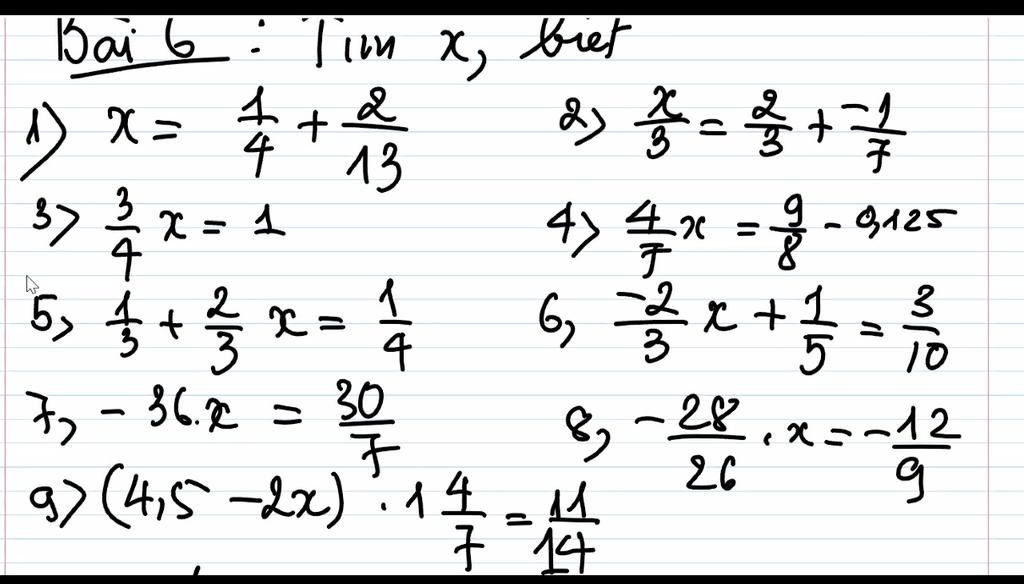 Bài 6 : Tìm x, biết
1) x = 1/4 + 2/13 2> x/3 = 2/3 + -1/7
3> 3/4 x = 1 4> 4/7 x = 9/8 - 0,125
5, 1/3 + 2/3 x = 1/4 6, -2/3 x + 1/5 = 3/10
7, - 36.x = 30/7 8, -28/26 . x = -12/9
9> (4,5 - 2x) . 1 4/7 = 11/14